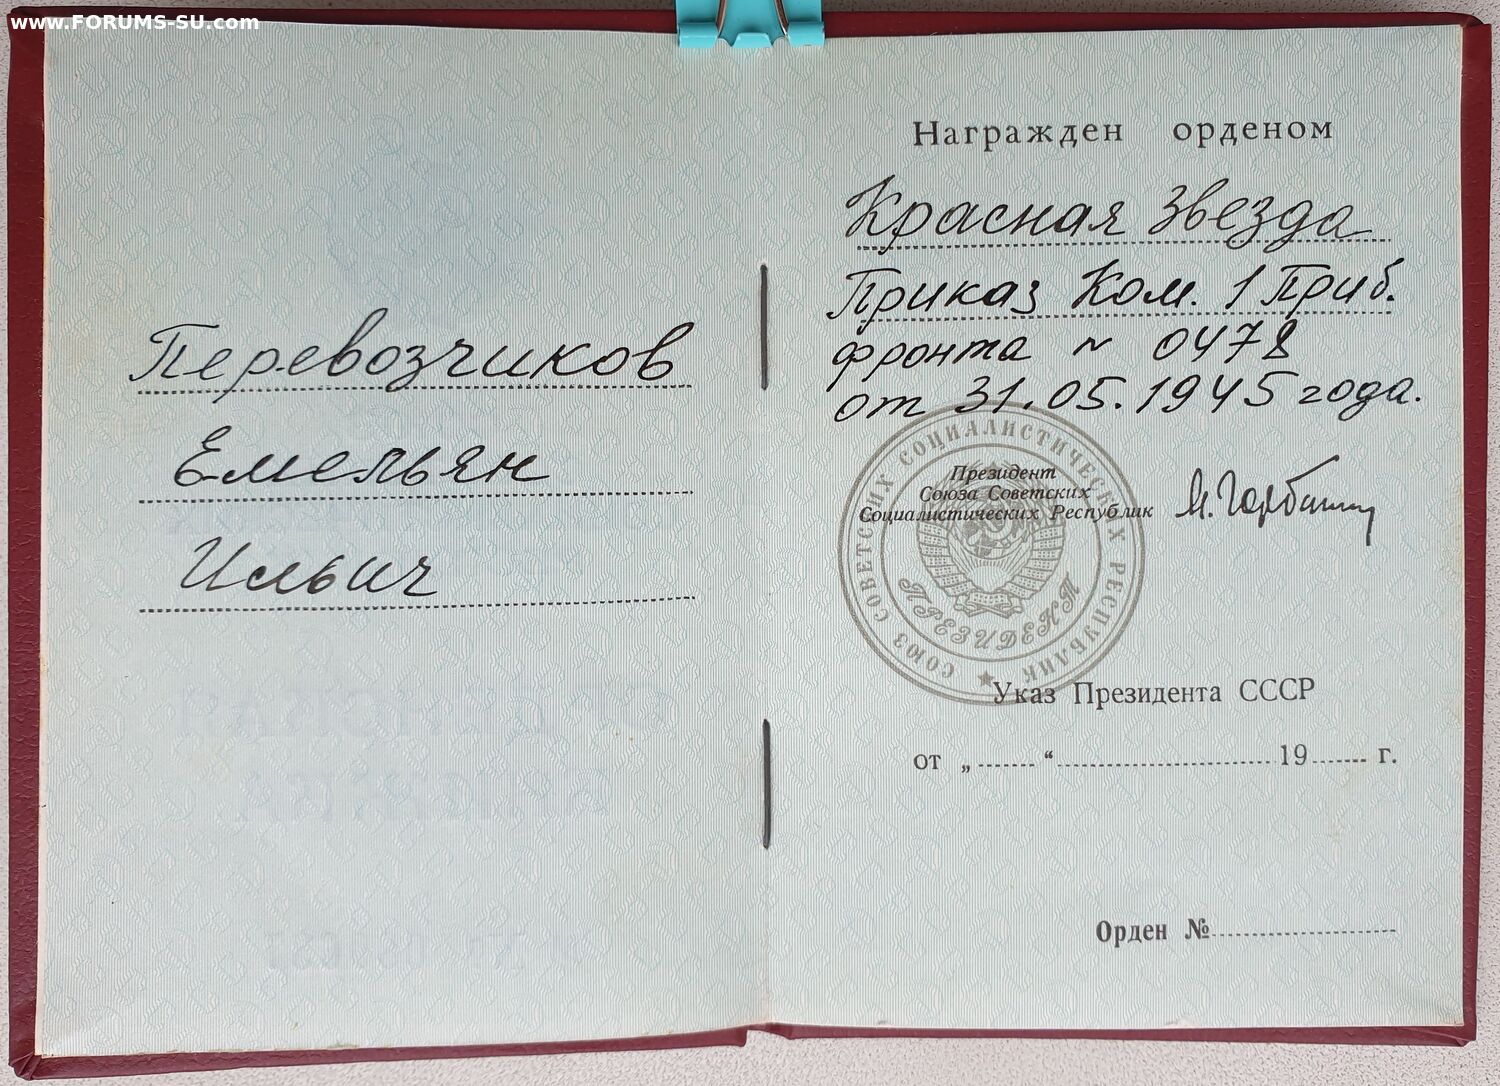 www.FORUMS-SU.com
Перевозчиков
Емельян
Ильич
Награжден орденом
Красная Звезда
Приказ Ком. 1 Приб.
фронта № 0478
от 31.05.1945 года.
СОЮЗ СОВЕТСКИХ СОЦИАЛИСТИЧЕСКИХ РЕСПУБЛИК
Президент
Союза Советских
Социалистических Республик
ПРЕЗИДЕНТ
Указ Президента СССР
от „ “ 19 г.
Орден №